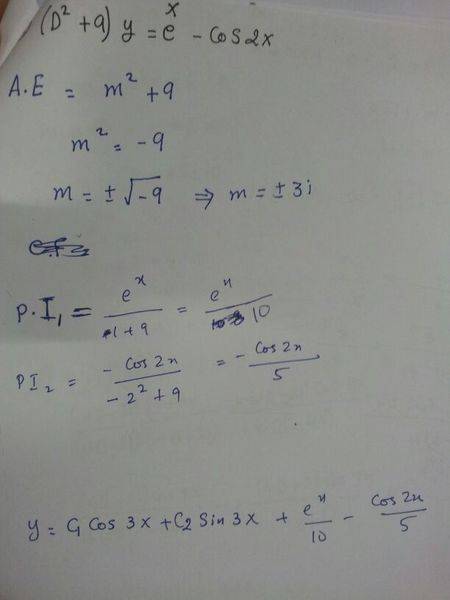 (D² + 9) y = e^x - Cos 2x
A.E = m² + 9
m² = -9
m = ±√-9 ⇒ m = ±3i
P.I₁ = e^x / 1+9 = e^x / 10
PI₂ = - Cos 2x / -2²+9 = - Cos 2x / 5
y = C₁ Cos 3x + C₂ Sin 3x + e^x / 10 - Cos 2x / 5